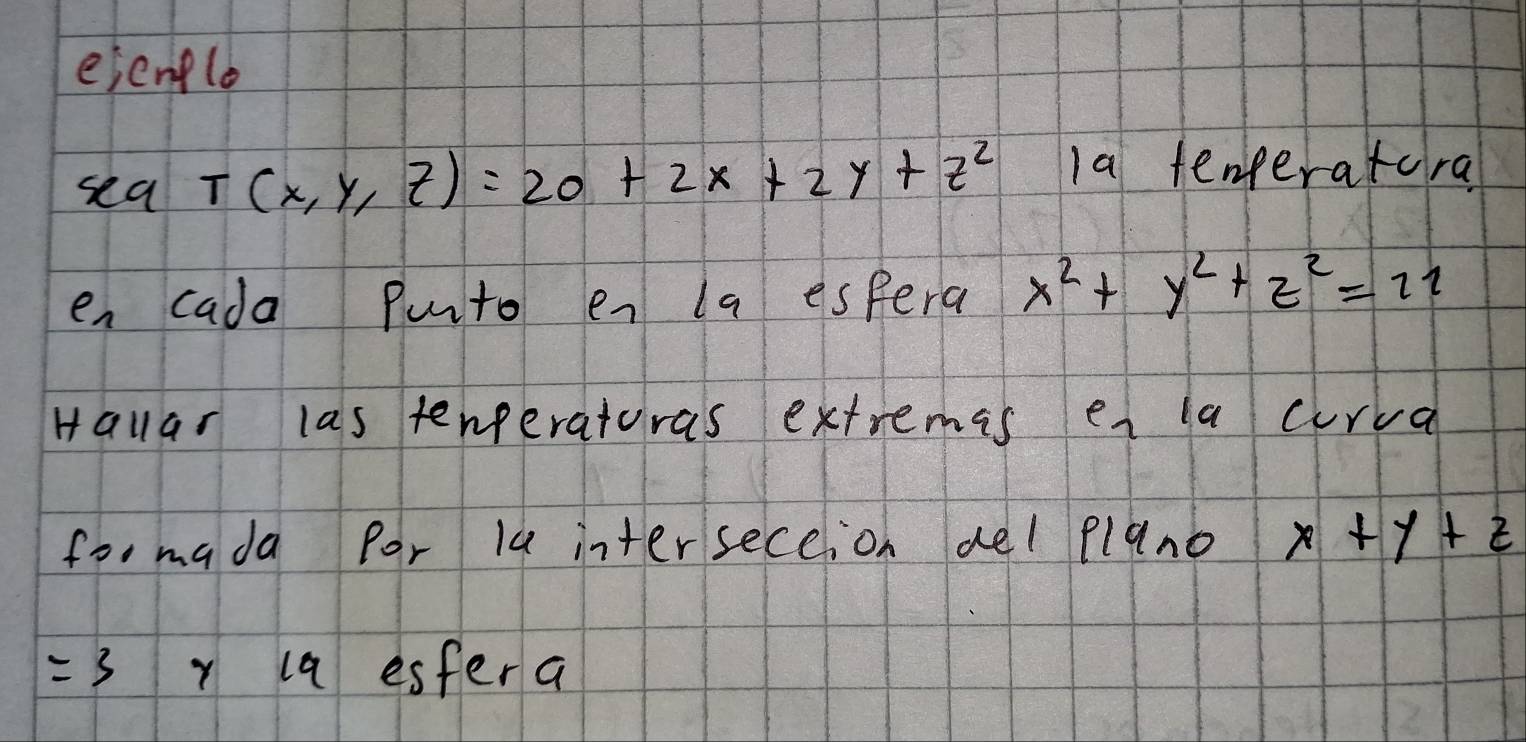 ejemplo
sea T(x, y, z) = 20 + 2x + 2y + z² la temperatura
en cada punto en la esfera x² + y² + z² = 11
Hallar las temperaturas extremas en la curva
formada por la interseccion del plano x + y + z
= 3 y la esfera